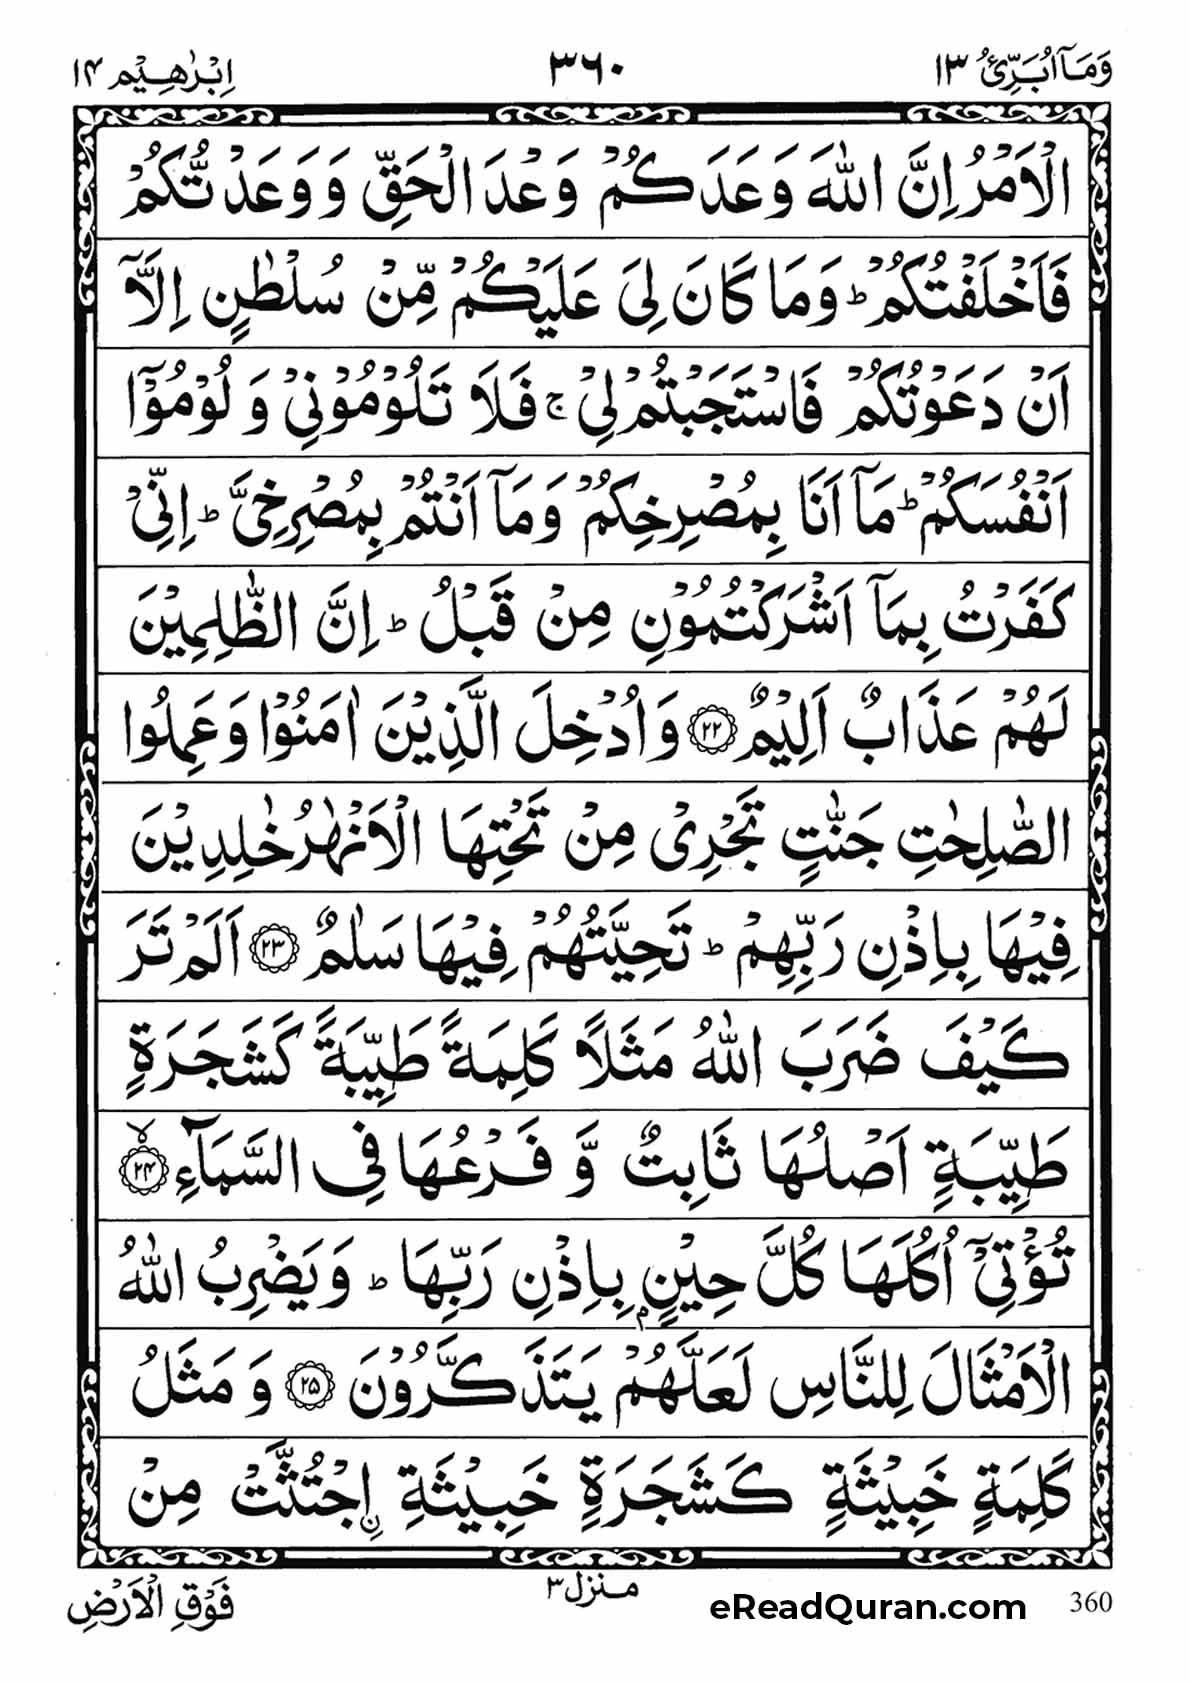 وَمَاۤ اُبَرِّئُ ١٣
٣٦٠
اِبْرٰهِیْم ١٤
الْاَمْرُ اِنَّ اللّٰهَ وَعَدَكُمْ وَعْدَ الْحَقِّ وَ وَعَدْتُّكُمْ
فَاَخْلَفْتُكُمْ ؕ وَمَا كَانَ لِیَ عَلَیْكُمْ مِّنْ سُلْطٰنٍ اِلَّاۤ
اَنْ دَعَوْتُكُمْ فَاسْتَجَبْتُمْ لِیْ ۚ فَلَا تَلُوْمُوْنِیْ وَ لُوْمُوْۤا
اَنْفُسَكُمْ ؕ مَاۤ اَنَا بِمُصْرِخِكُمْ وَمَاۤ اَنْتُمْ بِمُصْرِخِیَّ ؕ اِنِّیْ
كَفَرْتُ بِمَاۤ اَشْرَكْتُمُوْنِ مِنْ قَبْلُ ؕ اِنَّ الظّٰلِمِیْنَ
لَهُمْ عَذَابٌ اَلِیْمٌ ﴿٢٢﴾ وَاُدْخِلَ الَّذِیْنَ اٰمَنُوْا وَعَمِلُوا
الصّٰلِحٰتِ جَنّٰتٍ تَجْرِیْ مِنْ تَحْتِهَا الْاَنْهٰرُ خٰلِدِیْنَ
فِیْهَا بِاِذْنِ رَبِّهِمْ ؕ تَحِیَّتُهُمْ فِیْهَا سَلٰمٌ ﴿٢٣﴾ اَلَمْ تَرَ
كَیْفَ ضَرَبَ اللّٰهُ مَثَلًا كَلِمَةً طَیِّبَةً كَشَجَرَةٍ
طَیِّبَةٍ اَصْلُهَا ثَابِتٌ وَّ فَرْعُهَا فِی السَّمَآءِ ﴿٢٤﴾ ۙ
تُؤْتِیْۤ اُكُلَهَا كُلَّ حِیْنٍۭ بِاِذْنِ رَبِّهَا ؕ وَیَضْرِبُ اللّٰهُ
الْاَمْثَالَ لِلنَّاسِ لَعَلَّهُمْ یَتَذَكَّرُوْنَ ﴿٢٥﴾ وَ مَثَلُ
كَلِمَةٍ خَبِیْثَةٍ كَشَجَرَةٍ خَبِیْثَةِ ن اِجْتُثَّتْ مِنْ
منزل ٣
فَوْقِ الْاَرْضِ
eReadQuran.com
360